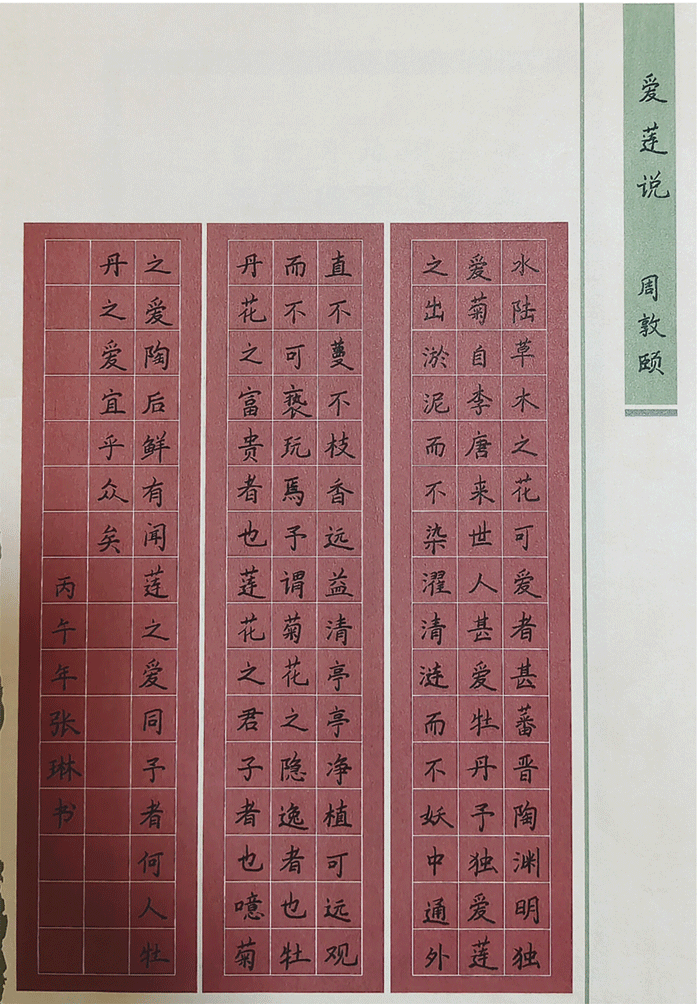 爱莲说 周敦颐
水陆草木之花可爱者甚蕃晋陶渊明独
爱菊自李唐来世人甚爱牡丹予独爱莲
之出淤泥而不染濯清涟而不妖中通外
直不蔓不枝香远益清亭亭净植可远观
而不可亵玩焉予谓菊花之隐逸者也牡
丹花之富贵者也莲花之君子者也噫菊
之爱陶后鲜有闻莲之爱同予者何人牡
丹之爱宜乎众矣
丙午年张琳书